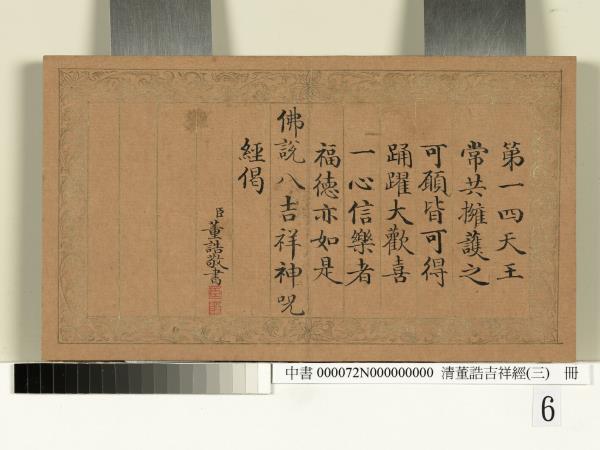 第一四天王
常共擁護之
可願皆可得
踊躍大歡喜
一心信樂者
福德亦如是
佛說八吉祥神呪
經偈
臣董誥敬書
中書 000072N000000000 清董誥吉祥經(三) 冊
6